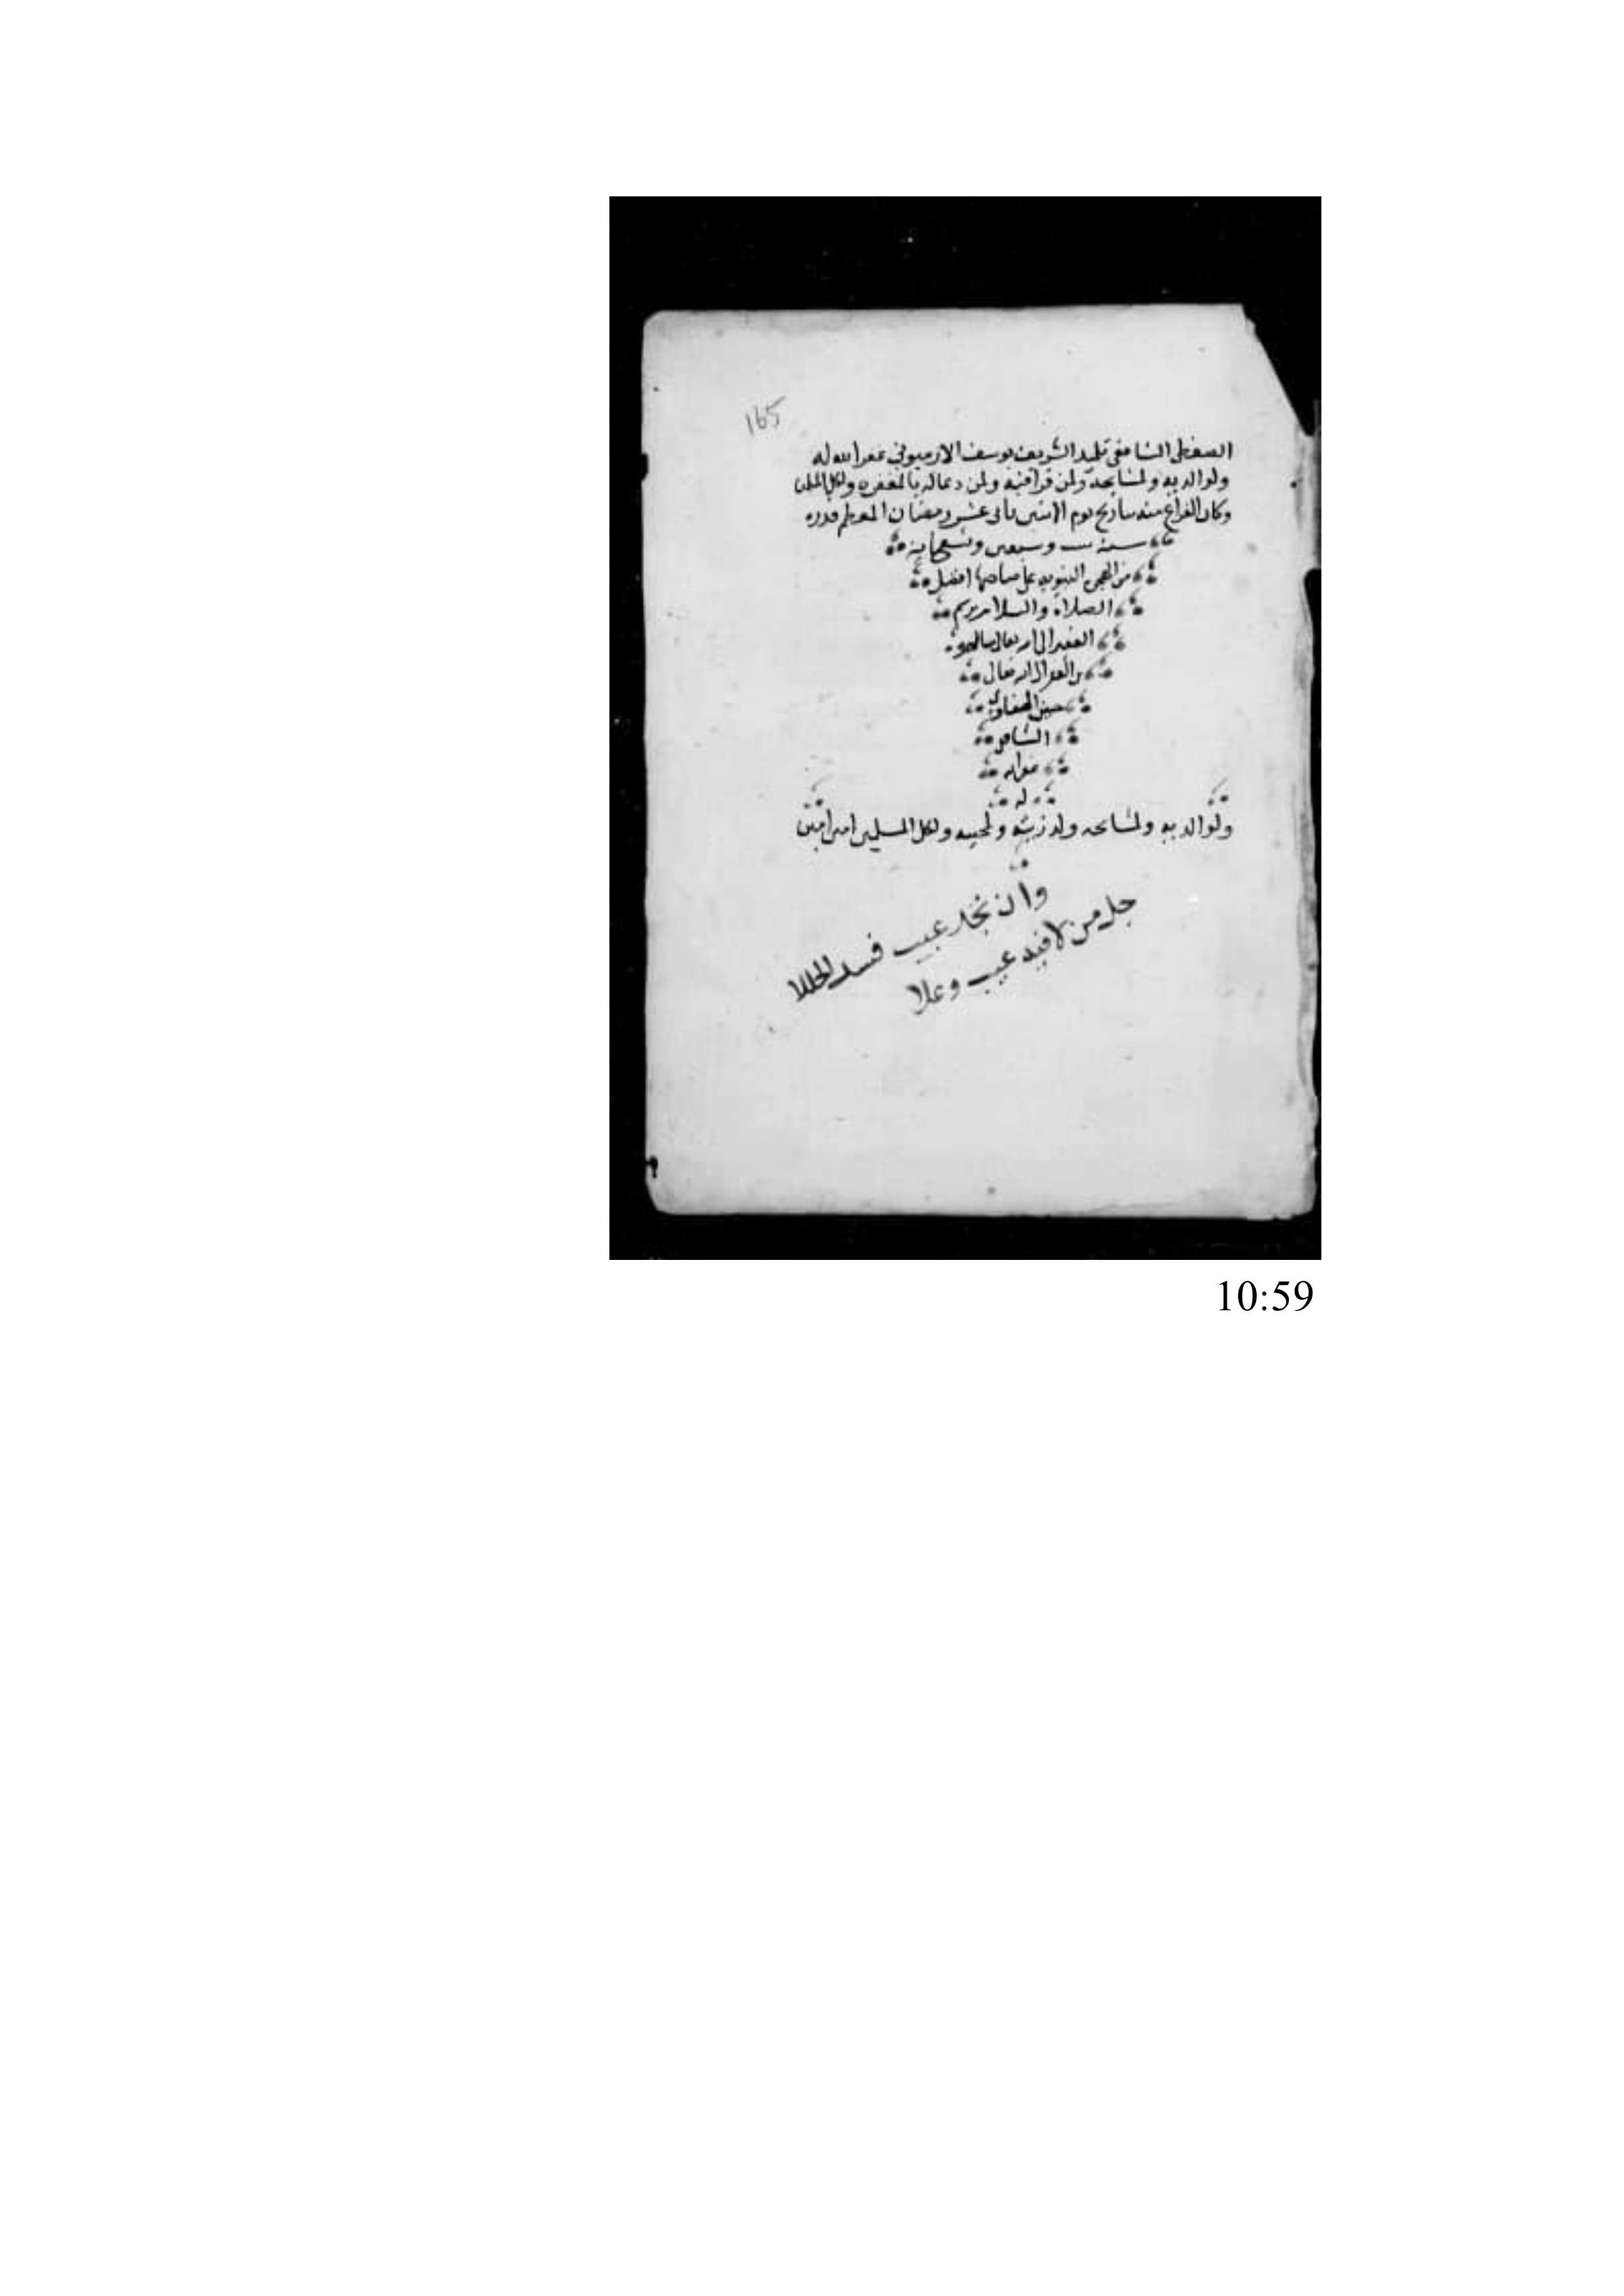 165
الصفطي الشافعي تلميذ الشريف يوسف الارميوني غفر الله له
ولوالديه ولمشايخه ولمن قرا فيه ولمن دعا له بالمغفره ولكل المسلمين
وكان الفراغ منه بتاريخ يوم الاثنين ثاني عشر رمضان المعظم قدره
سنة ست وسبعين وتسعماية
من الهجره النبويه على صاحبها افضل
الصلاة والسلام
الفقير الى الله تعالى
الفقير الى الله تعالى
حسن
الشافعي
غفر الله
له
ولوالديه ولمشايخه ولذريته ولمحبيه ولكل المسلمين امين امين
وان تجد عيب فسد الخللا
جل من لا فيه عيب وعلا
10:59